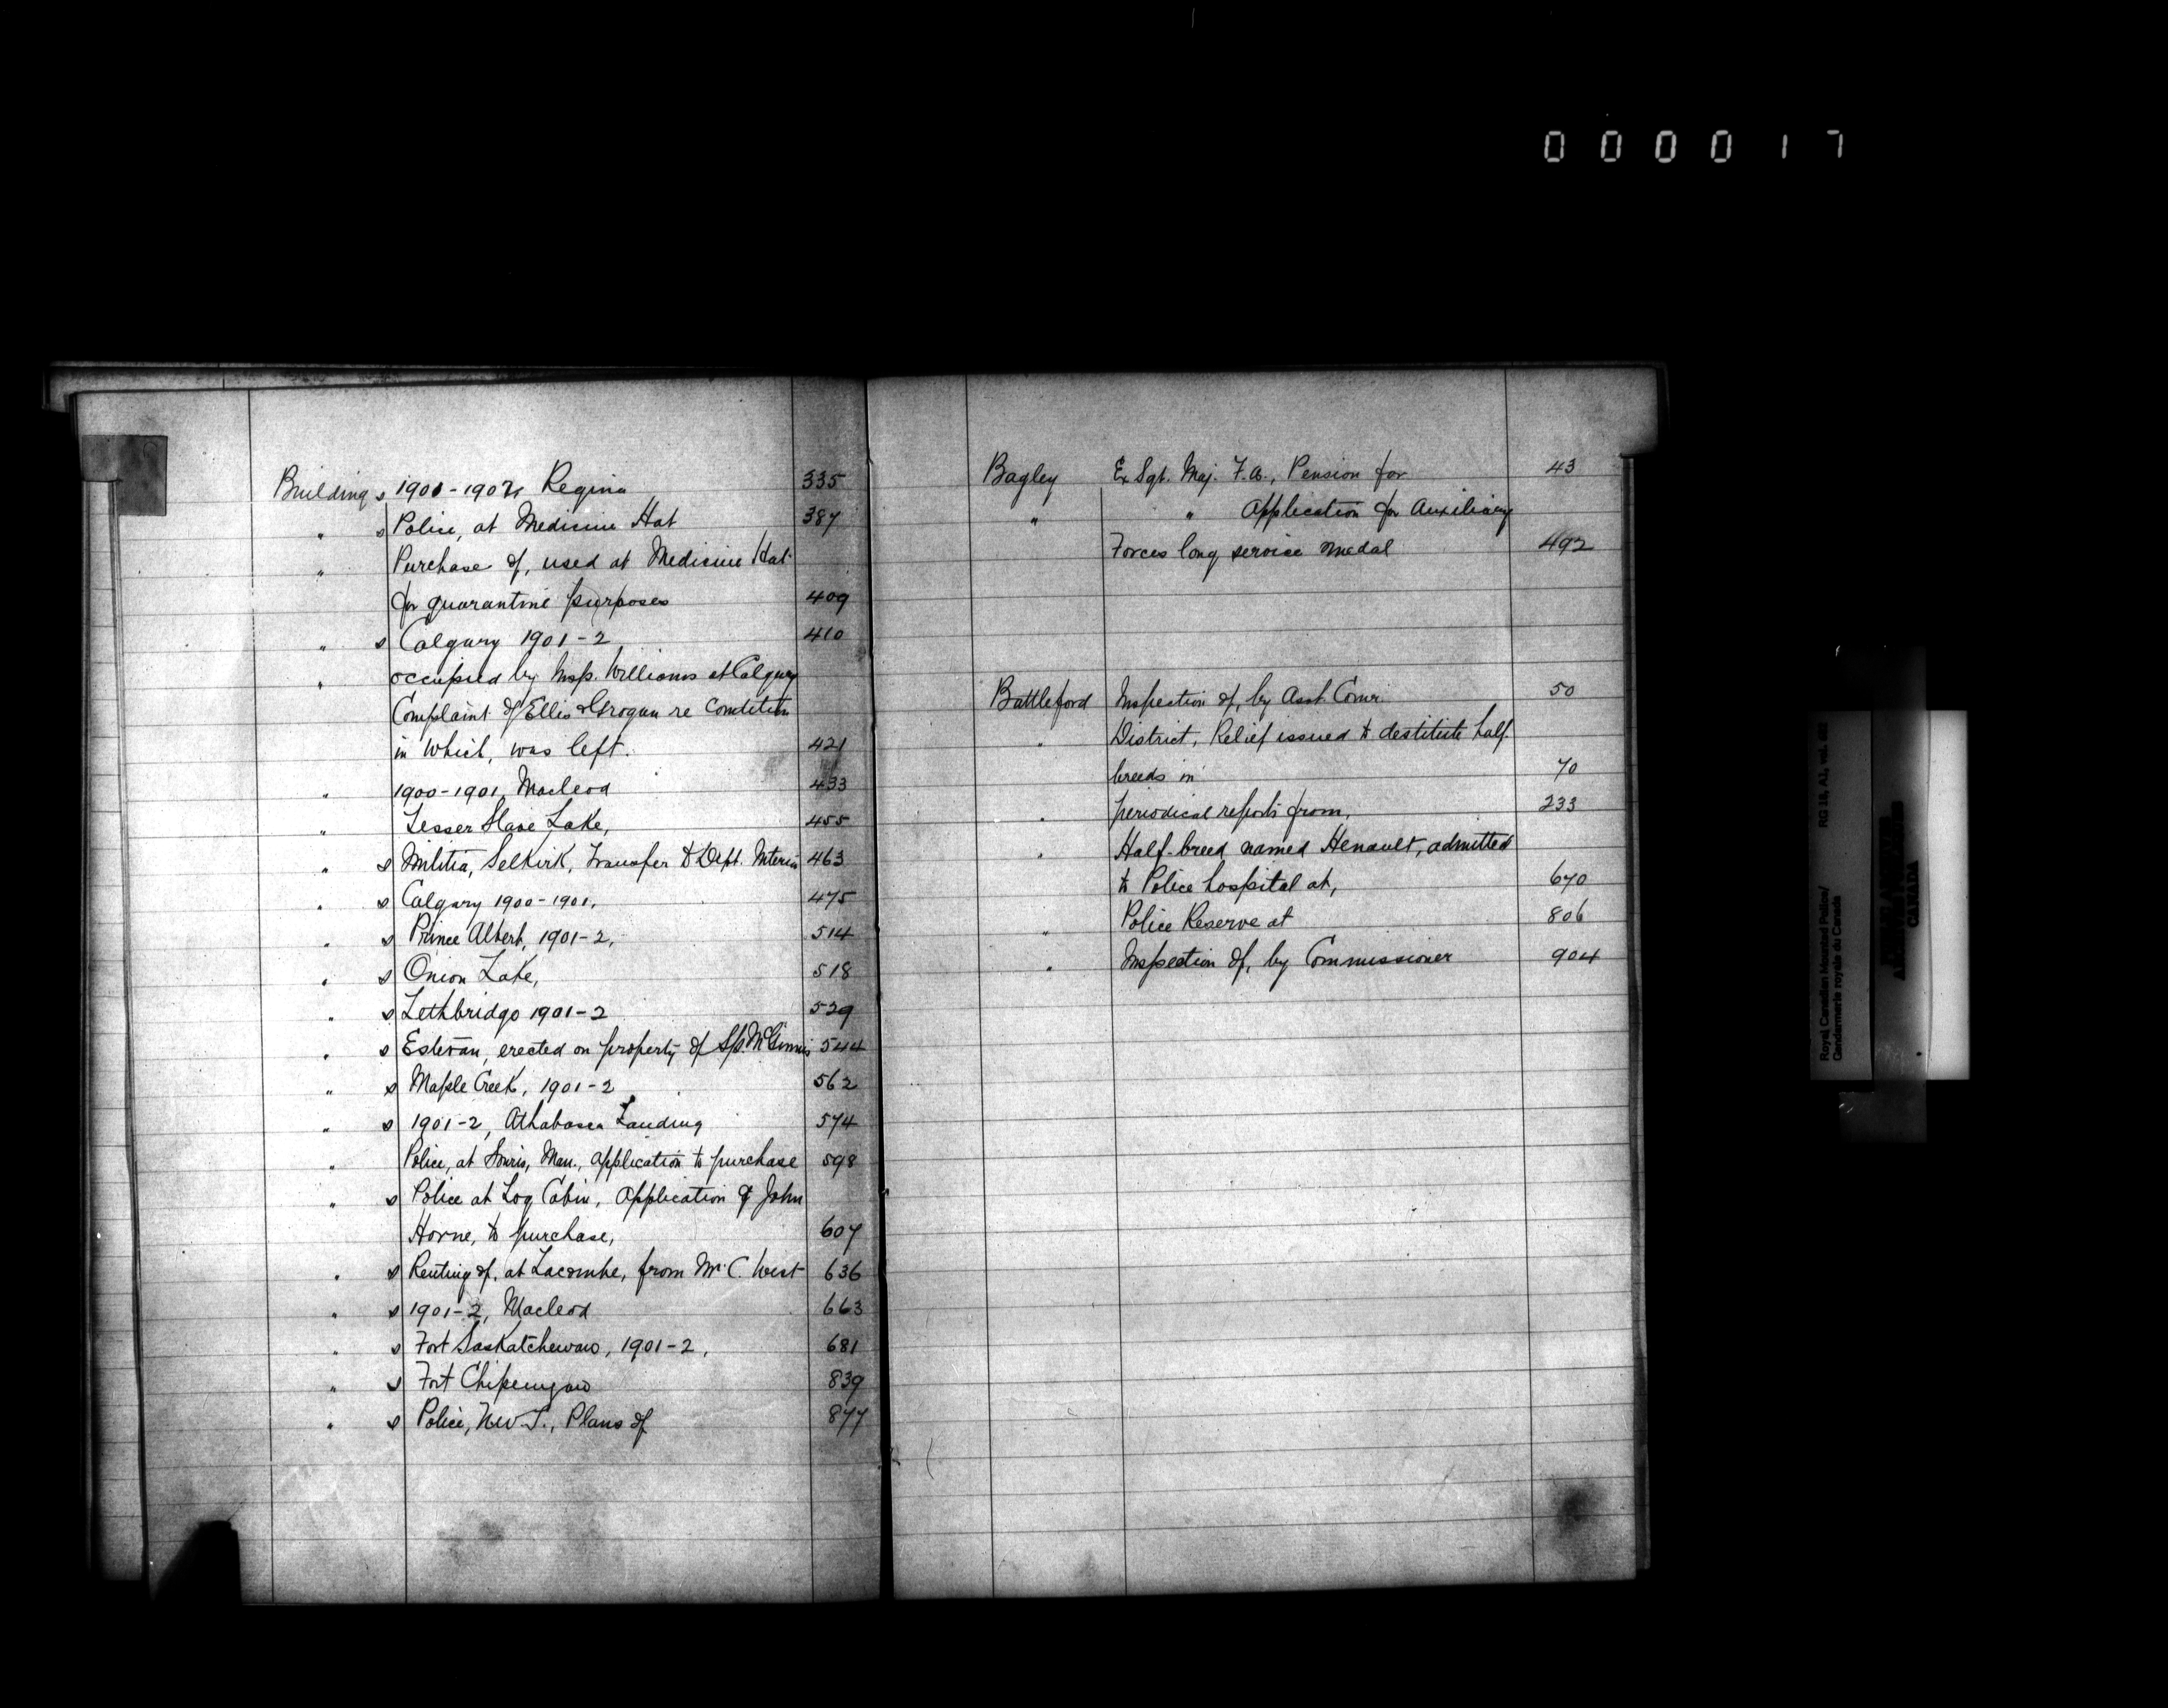 000017
Buildings 1901-1902, Regina 335
" s Police, at Medicine Hat 387
" Purchase of, used at Medicine Hat
for quarantine purposes 409
" s Calgary 1901-2 410
" occupied by Insp. Williams at Calgary
Complaint of Ellis & Grogan re Condition
in which, was left. 421
" 1900-1901, Macleod 433
" Lesser Slave Lake, 455
" s Militia, Selkirk, Transfer to Dept. Interior 463
" s Calgary 1900-1901. 475
" s Prince Albert, 1901-2, 514
" s Onion Lake, 518
" s Lethbridge 1901-2 529
" s Estevan, erected on property of S/S. McGinnis 544
" s Maple Creek, 1901-2 562
" s 1901-2, Athabasca Landing 574
" Police, at Souris, Man., application to purchase 598
" s Police at Log Cabin, Application of John
Horne, to purchase, 607
" s Renting of, at Lacombe, from Mr. C. West 636
" s 1901-2, Macleod 663
" s Fort Saskatchewan, 1901-2, 681
" s Fort Chipewyan 839
" s Police, N.W.T., Plans of 877
Bagley Ex Sgt. Maj. F.A., Pension for 43
" " Application for Auxiliary
Forces long service medal 492
Battleford Inspection of, by Asst. Comr. 50
" District, Relief issued to destitute half
breeds in 70
" periodical reports from, 233
" Half-breed named Henault, admitted
to Police hospital at, 670
" Police Reserve at 806
" Inspection of, by Commissioner 904
Royal Canadian Mounted Police/
Gendarmerie royale du Canada
RG 18, A1, vol.
CANADA